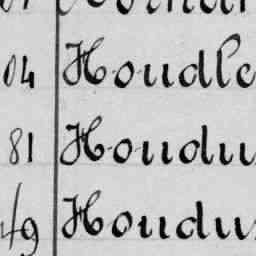 04 Houdle
81 Houdu
49 Houdu